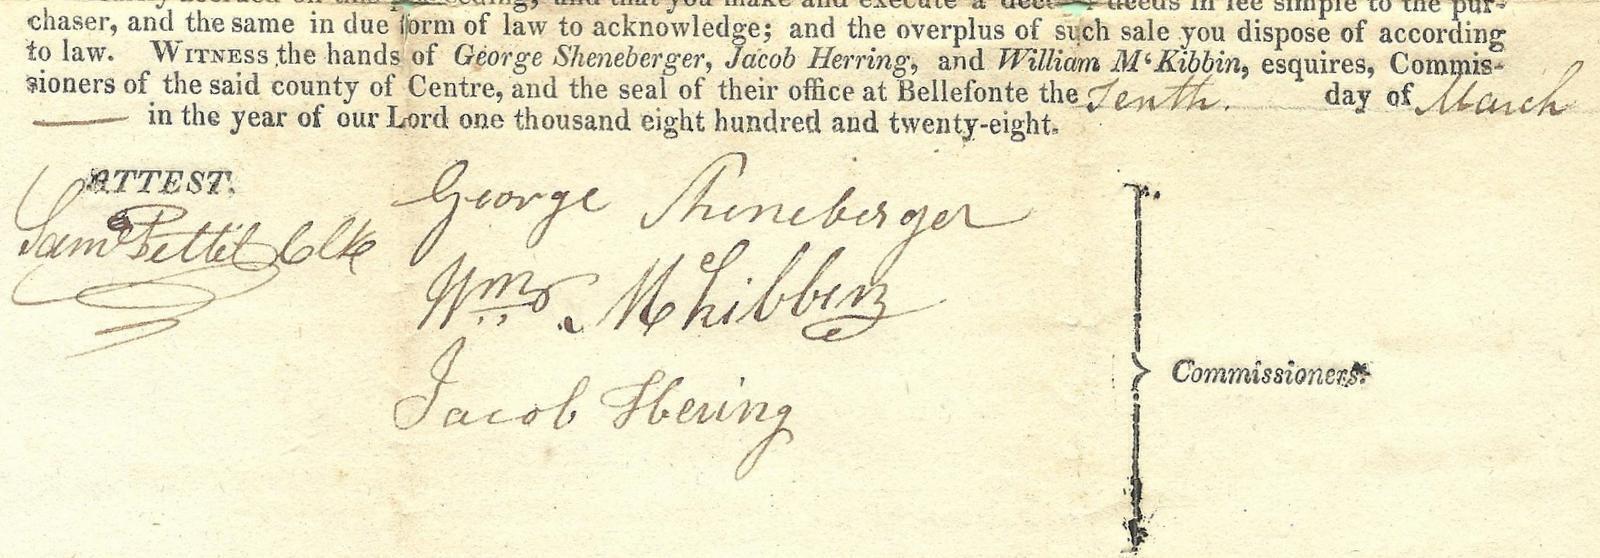 and that you make and execute a deed or deeds in fee simple to the pur-
chaser, and the same in due form of law to acknowledge; and the overplus of such sale you dispose of according
to law. WITNESS the hands of George Sheneberger, Jacob Herring, and William M'Kibbin, esquires, Commis-
sioners of the said county of Centre, and the seal of their office at Bellefonte the Tenth. day of March
in the year of our Lord one thousand eight hundred and twenty-eight.
ATTEST.
George Sheneberger
Saml Pettit Clk
Wm. McKibben
Commissioners.
Jacob Hering